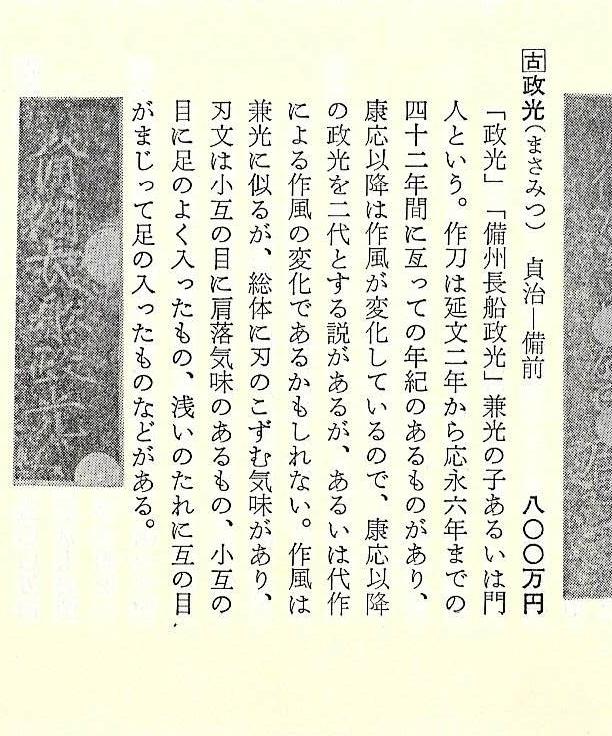 古政光(まさみつ) 貞治―備前 八〇〇万円
「政光」「備州長船政光」兼光の子あるいは門
人という。作刀は延文二年から応永六年までの
四十二年間に亙っての年紀のあるものがあり、
康応以降は作風が変化しているので、康応以降
の政光を二代とする説があるが、あるいは代作
による作風の変化であるかもしれない。作風は
兼光に似るが、総体に刃のこずむ気味があり、
刃文は小互の目に肩落気味のあるもの、小互の
目に足のよく入ったもの、浅いのたれに互の目
がまじって足の入ったものなどがある。